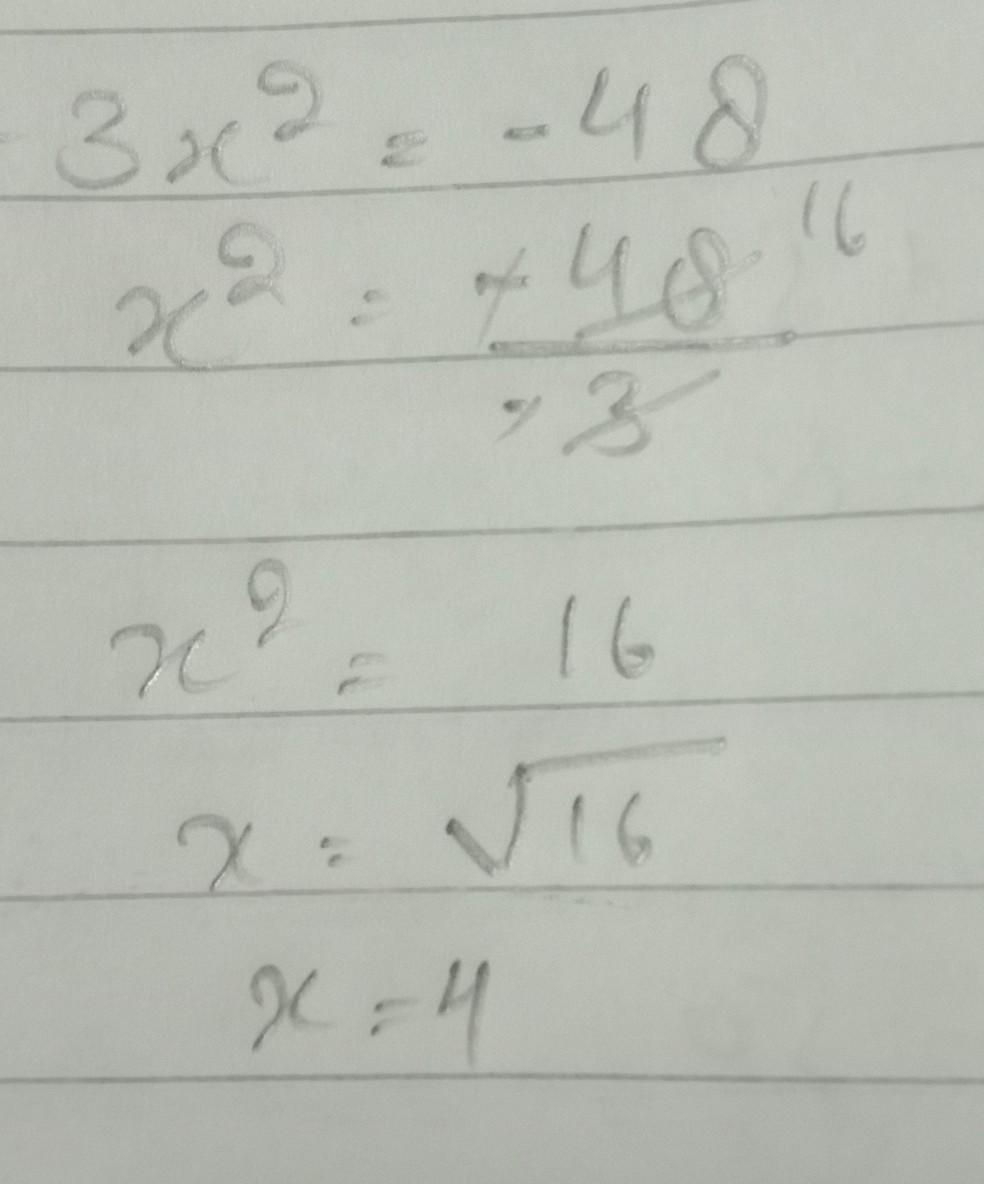 -3x² = -48
x² = -48 16
-3
x² = 16
x = √16
x = 4